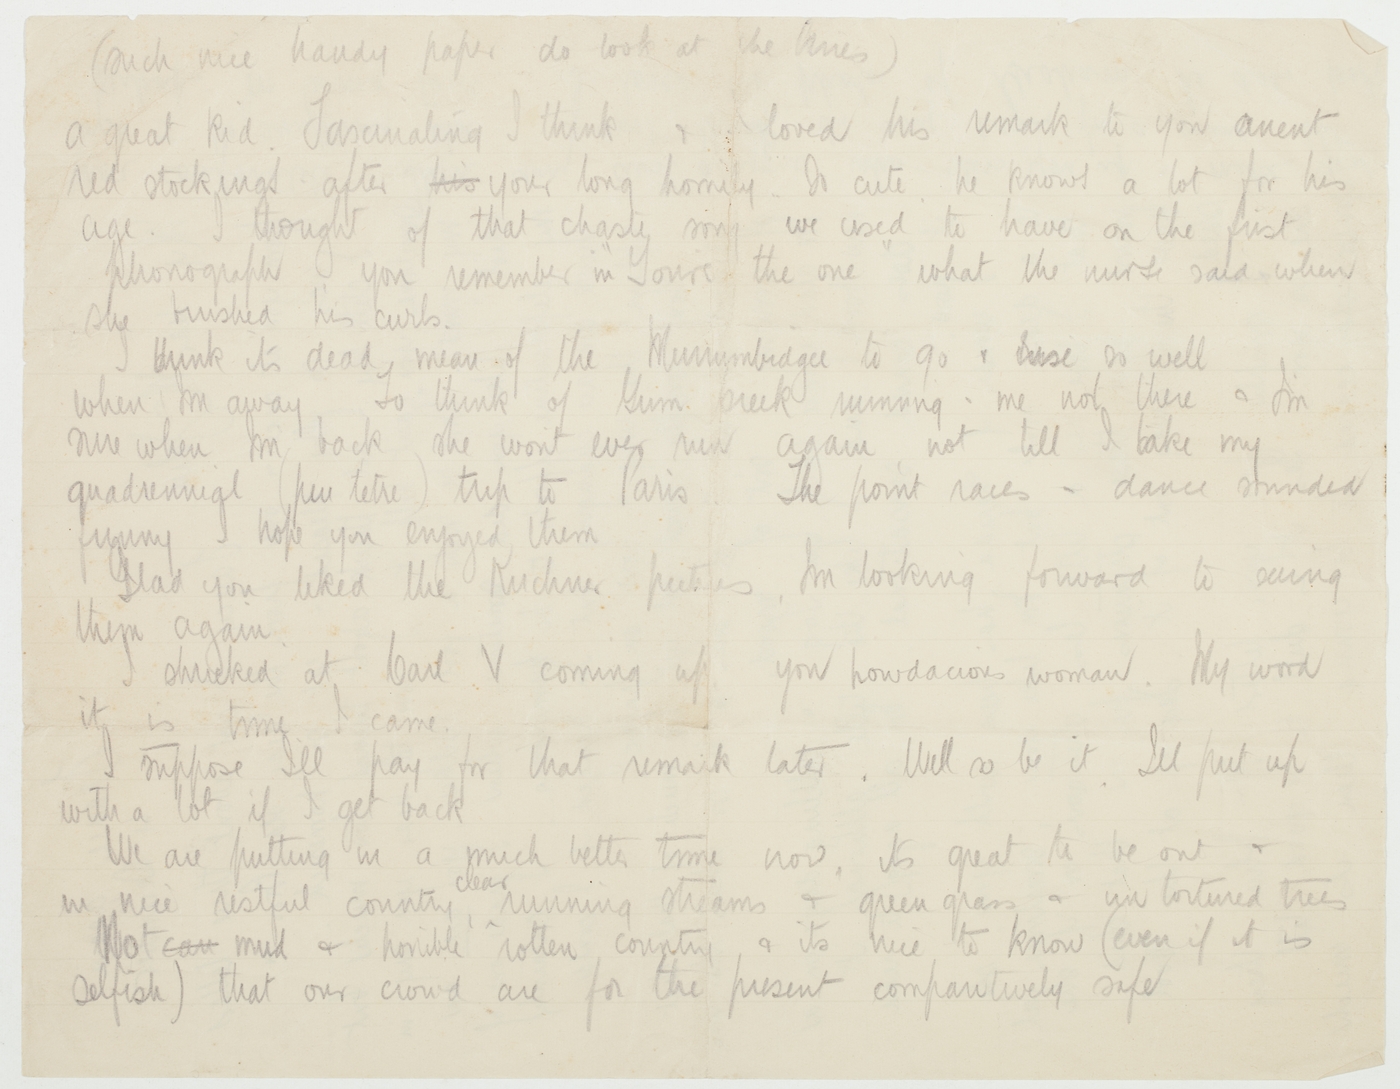 (such nice handy paper do look at the lines)
a great kid. Fascinating I think & I loved his remark to you anent
red stockings after his your long homily. So cute he knows a lot for his
age. I thought of that chaste song we used to have on the first
phonograph I you remember in "You're the one" what the nurse said when
she brushed his curls.
I think its dead mean of the Murrumbidgee to go & rise so well
when Im away. To think of Gum creek running & me not there & Im
sure when Im back she wont ever run again not till I take my
quadrennial (peu tetre) trip to Paris The point races & dance sounded
funny I hope you enjoyed them
Glad you liked the Kirchner pictures, Im looking forward to seeing
them again.
I shrieked at Carl V coming up you powdacious woman. My word
it is time I came.
I suppose Ill pay for that remark later. Well so be it. Ill put up
with a lot if I get back
We are putting in a much better time now, its great to be out &
in nice restful country, clear running streams & green grass & un tortured trees
Not can mud & horrible rotten country & its nice to know (even if it is
selfish) that our crowd are for the present comparitively safe